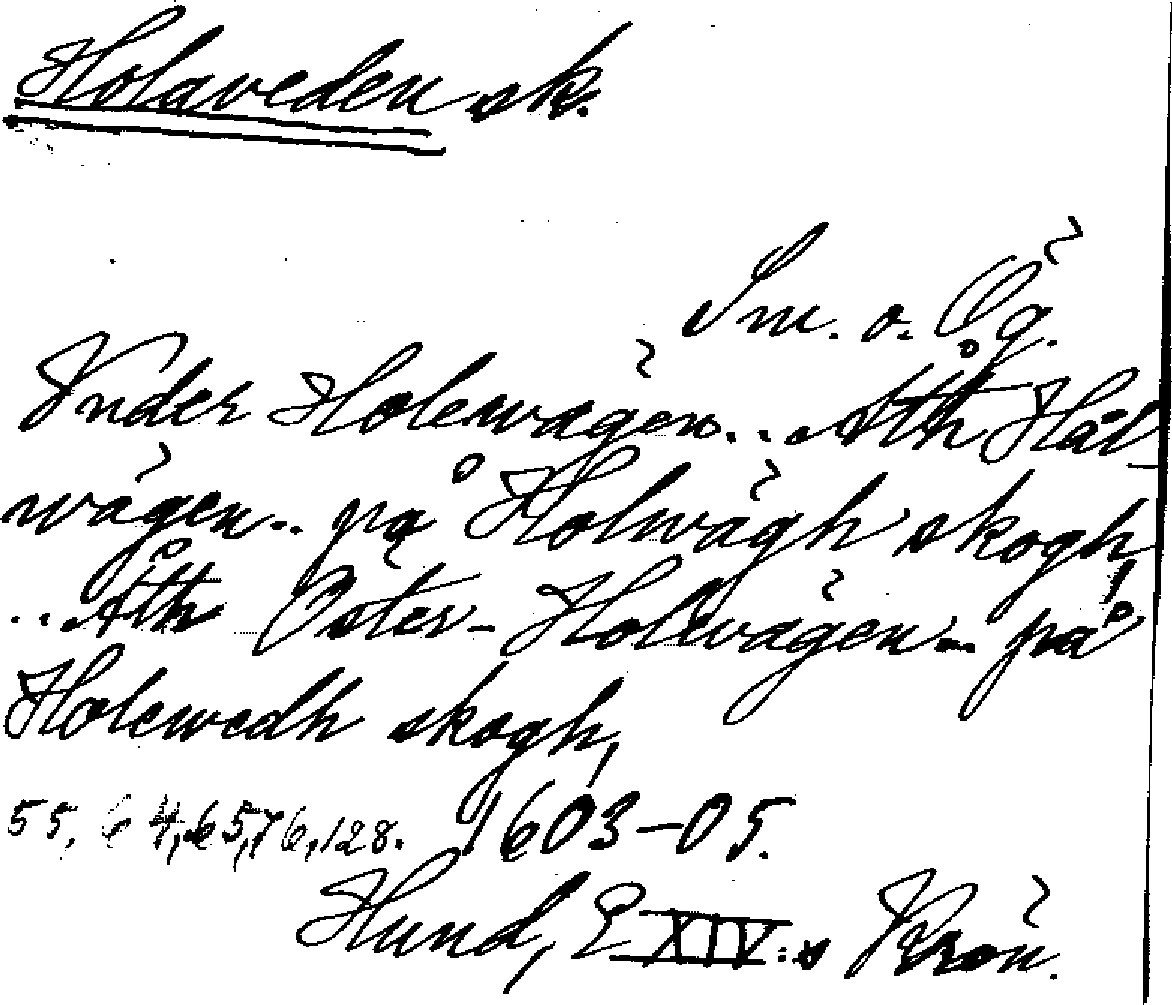 Holaveden sk.
Sm. o. Ög.
Vnder Holewägen... Åth Hål-
wägen.. på Holwägh skogh,
.. Åth Öster-Holwägen.. på
Holewedh skogh,
55, 64, 65, 76, 128. 1603-05.
Hund, E XIV:s Krön.